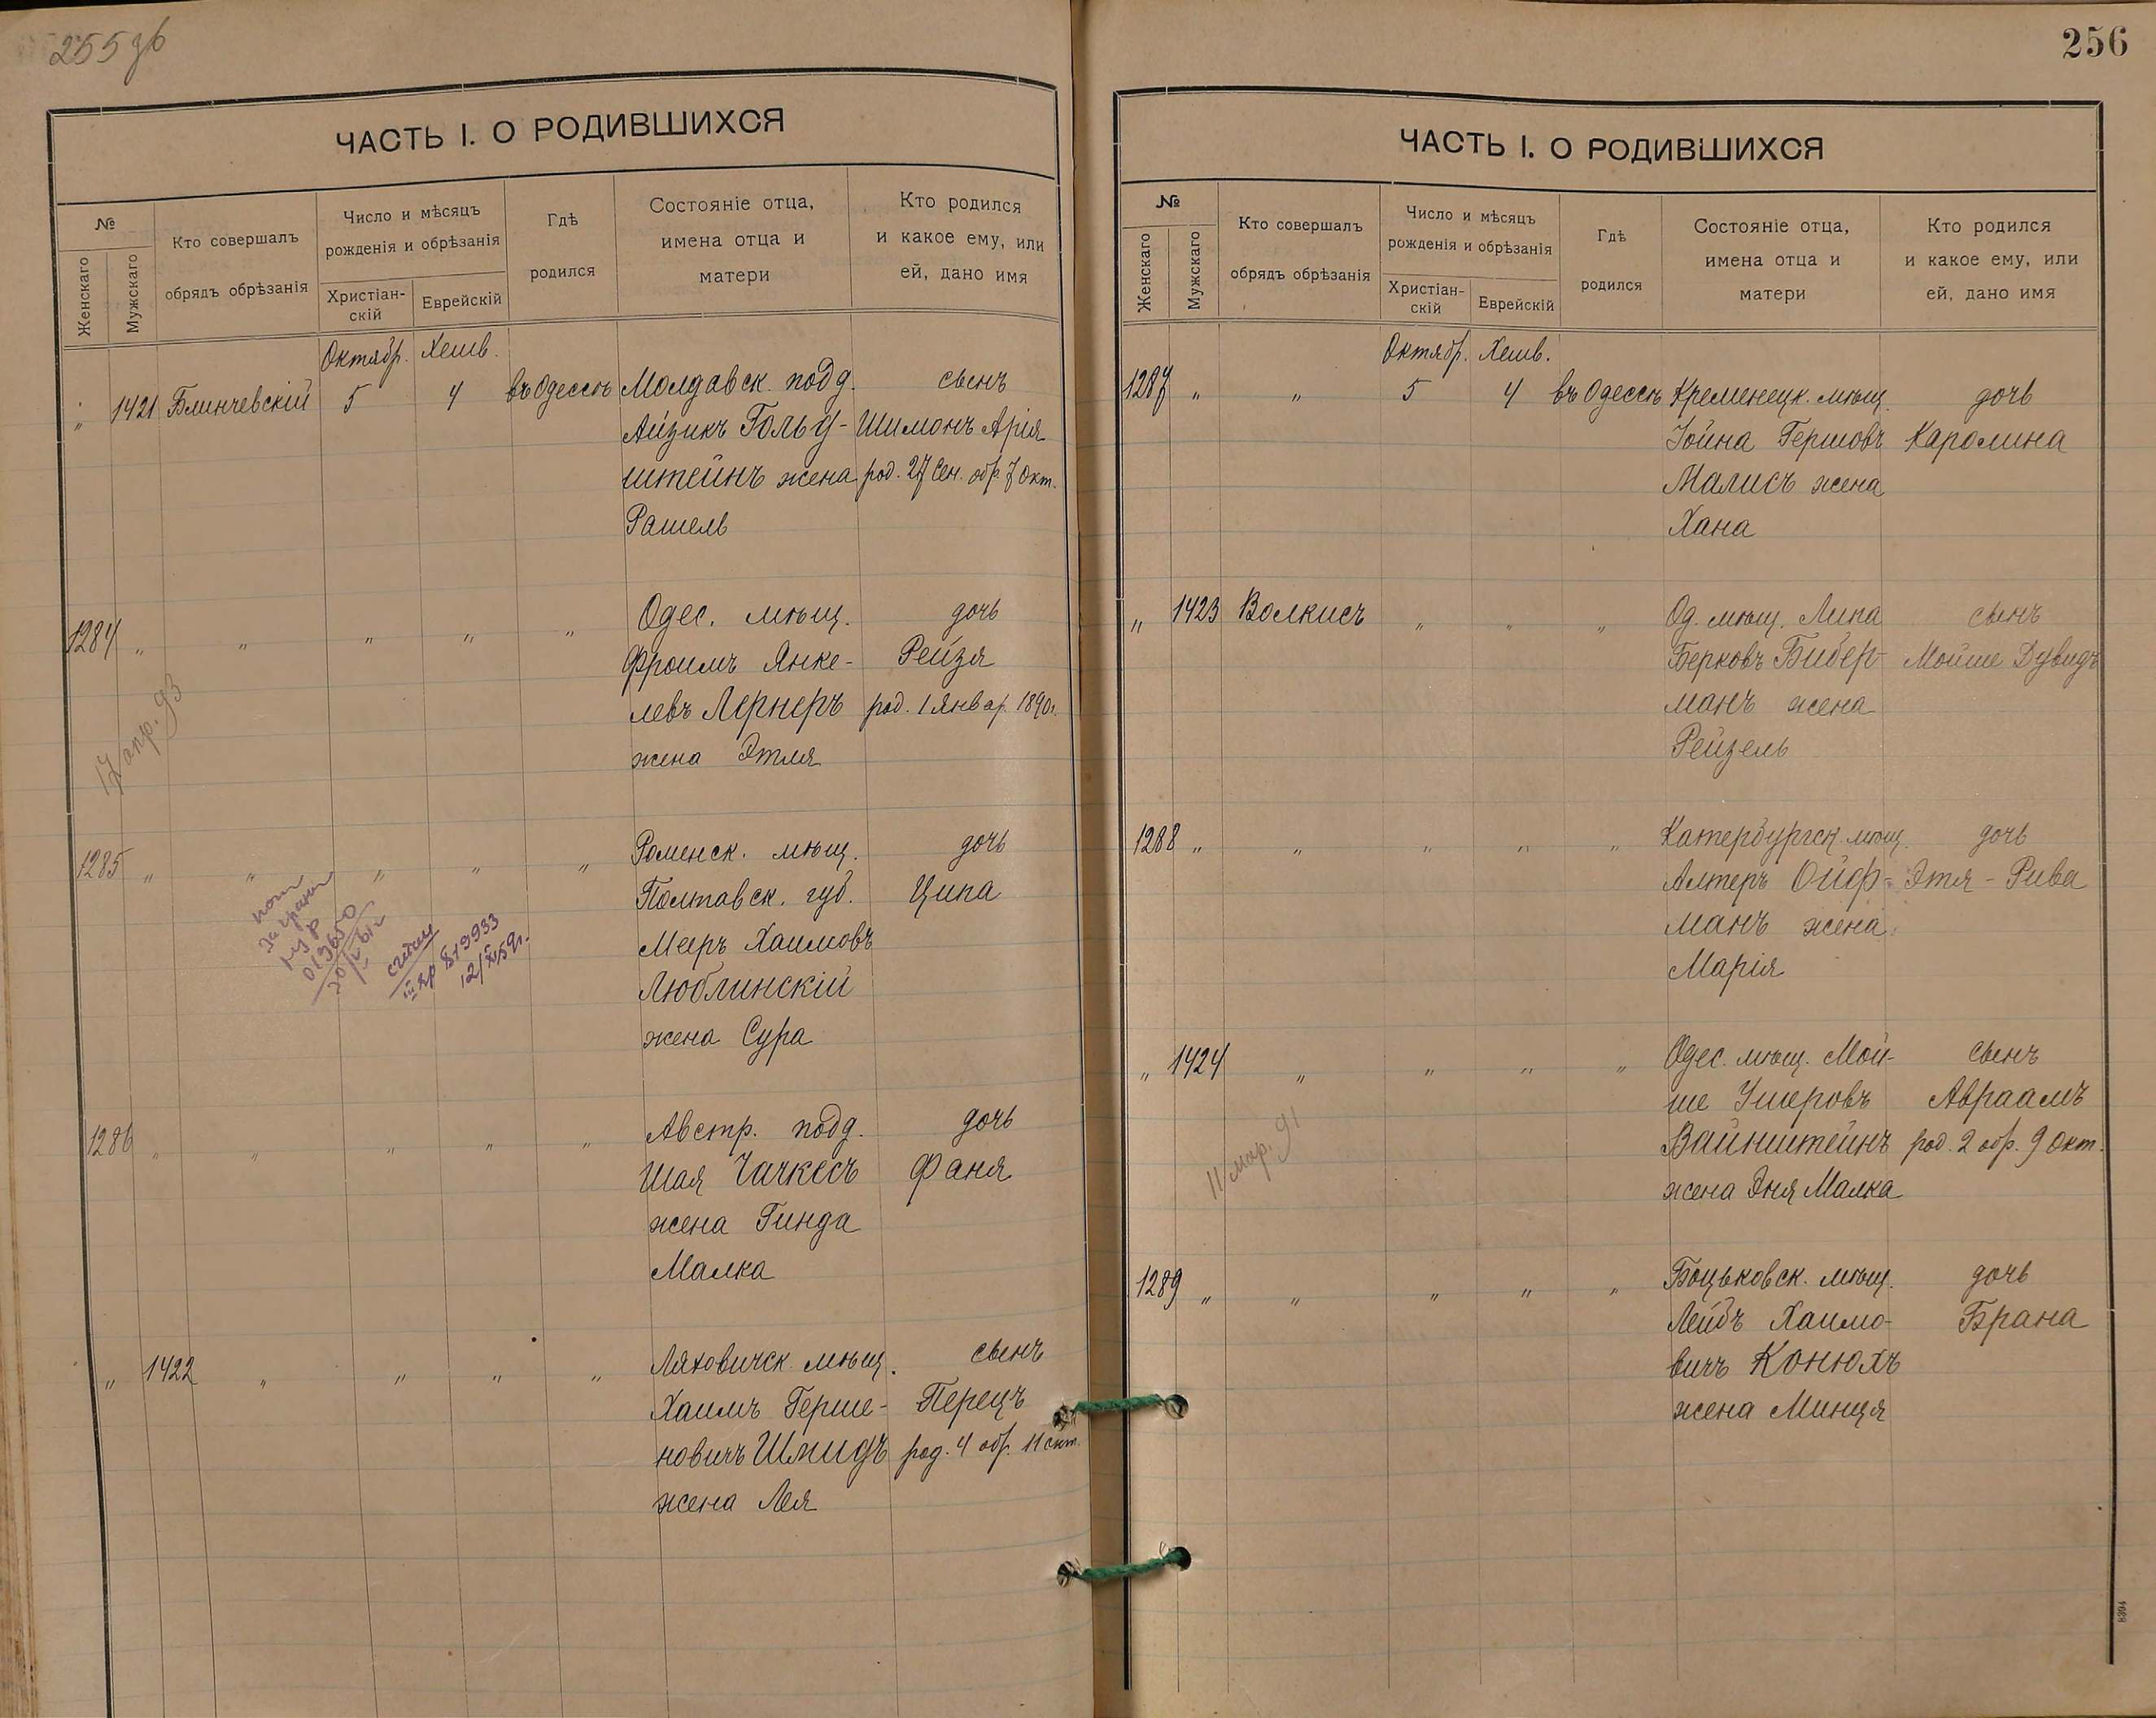 255 об
ЧАСТЬ I. О РОДИВШИХСЯ
№
Женскаго
Мужскаго
Кто совершалъ
обрядъ обрѣзанія
Число и мѣсяцъ
рожденія и обрѣзанія
Христіан-
скій
Еврейскій
Гдѣ
родился
Состояніе отца,
имена отца и
матери
Кто родился
и какое ему, или
ей, дано имя
Октябр. Хешв.
„ 1421 Блинчевскій 5 4 въ Одессѣ Молдавск. подд. сынъ
Айзикъ Гольд- Шимонъ Арія
штейнъ жена род. 27 Сен. обр. 7 Окт.
Рашель
1284 „ „ „ „ „ Одес. мѣщ. дочь
Фроимъ Янке- Рейзя
левъ Лернеръ род. 1 Январ. 1890г.
жена Этля
17 апр. 93
1285 „ „ „ „ „ Роменск. мѣщ. дочь
Полтавск. губ. Ципа
Мееръ Хаимовъ
Люблинскій
жена Сура
12/XI 59г.
1286 „ „ „ „ „ Австр. подд. дочь
Шая Чачкесъ Фаня
жена Гинда
Малка
„ 1422 „ „ „ „ Ляховичск. мѣщ. сынъ
Хаимъ Герше- Перецъ
новичъ Шмидъ род. 4 обр. 11 окт.
жена Лея
256
ЧАСТЬ I. О РОДИВШИХСЯ
№
Женскаго
Мужскаго
Кто совершалъ
обрядъ обрѣзанія
Число и мѣсяцъ
рожденія и обрѣзанія
Христіан-
скій
Еврейскій
Гдѣ
родился
Состояніе отца,
имена отца и
матери
Кто родился
и какое ему, или
ей, дано имя
Октябр. Хешв.
1287 „ „ 5 4 въ Одессѣ Кременецк. мѣщ. дочь
Іойна Гершовъ Каролина
Малисъ жена
Хана
„ 1423 Волкисъ „ „ „ Од. мѣщ. Липа сынъ
Берковъ Бибер- Мойше Дувидъ
манъ жена
Рейзель
1288 „ „ „ „ „ Катербургск. мѣщ. дочь
Алтеръ Ойф- Этя - Рива
манъ жена
Марія
„ 1424 „ „ „ „ Одес. мѣщ. Мой- сынъ
ше Ушеровъ Авраамъ
Вайнштейнъ род. 2 обр. 9 Окт.
жена Эня Малка
11 мар. 91
1289 „ „ „ „ „ Боцьковск. мѣщ. дочь
Лейбъ Хаимо- Брана
вичъ Конюхъ
жена Минця
8394